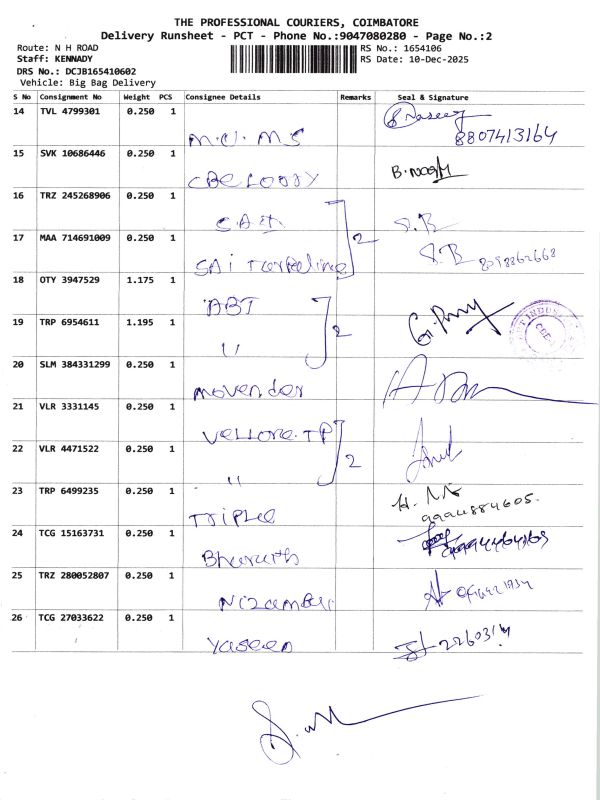 THE PROFESSIONAL COURIERS, COIMBATORE
Delivery Runsheet - PCT - Phone No.:9047080280 - Page No.:2
Route: N H ROAD
RS No.: 1654106
Staff: KENNADY
RS Date: 10-Dec-2025
DRS No.: DCJB165410602
Vehicle: Big Bag Delivery
S No Consignment No Weight PCS Consignee Details Remarks Seal & Signature
14 TVL 4799301 0.250 1 M.U.MS 8807413164
15 SVK 10686446 0.250 1 CBE LOOJY
16 TRZ 245268906 0.250 1
17 MAA 714691009 0.250 1 SAi 2 8098862668
18 OTY 3947529 1.175 1 ABT
19 TRP 6954611 1.195 1 " 2
20 SLM 384331299 0.250 1 movender
21 VLR 3331145 0.250 1 VELLORE.TP
22 VLR 4471522 0.250 1 " 2
23 TRP 6499235 0.250 1 TRIPLE
24 TCG 15163731 0.250 1 Bharath
25 TRZ 280052807 0.250 1
26 TCG 27033622 0.250 1 Yaseen